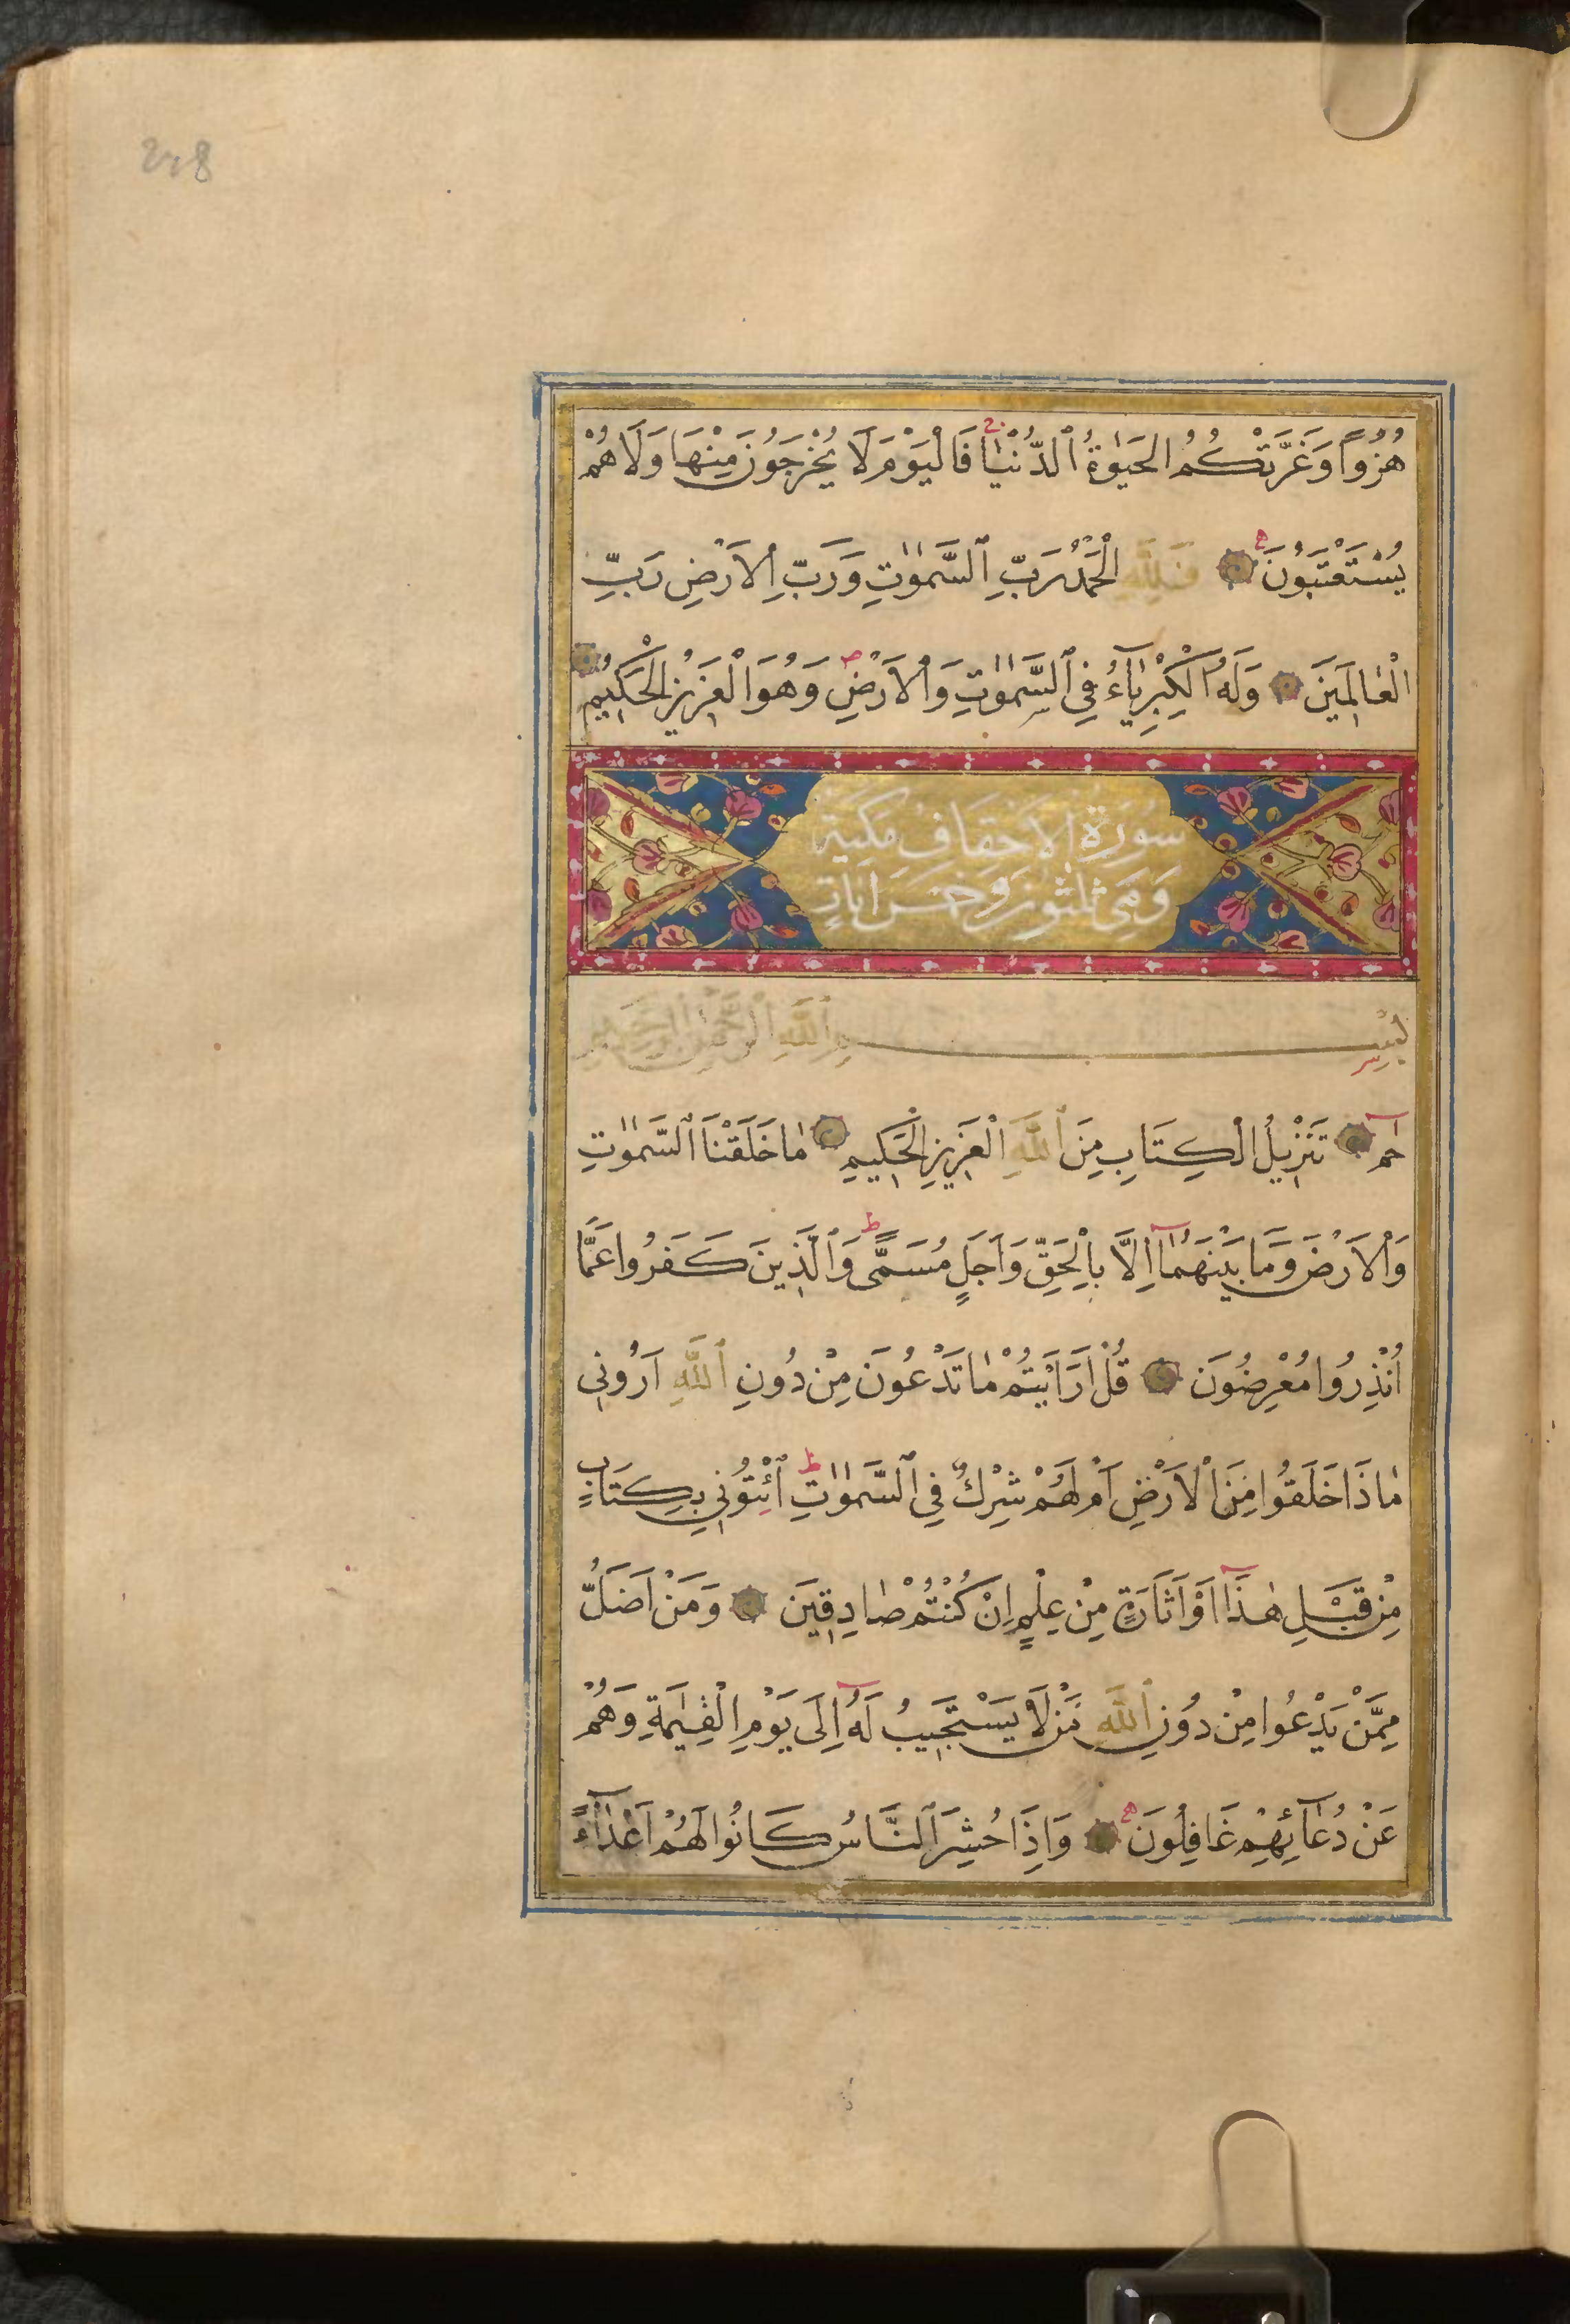 248
هُزُواً وَغَرَّتْكُمُ الْحَيٰوةُ ٱلدُّنْيٰا فَالْيَوْمَ لَا يُخْرَجُونَ مِنْهَا وَلَا هُمْ
يُسْتَعْتَبُونَ فَلِلّٰهِ الْحَمْدُ رَبِّ ٱلسَّمٰوٰتِ وَرَبِّ الْاَرْضِ رَبِّ
الْعٰالَمِينَ وَلَهُ الْكِبْرِيٰآءُ فِي ٱلسَّمٰوٰتِ وَالْاَرْضِ وَهُوَ الْعَزِيزُ الْحَكِيمُ
سُورَةُ الاَحْقَافِ مَكِّيَّة
وَهِيَ ثَلٰثُونَ وَخَمْسَ آيَاتٍ
بِسْمِ ٱللّٰهِ الرَّحْمٰنِ الرَّحِيمِ
حٰمٓ تَنْزِيلُ الْكِتَابِ مِنَ ٱللّٰهِ الْعَزِيزِ الْحَكِيمِ مٰا خَلَقْنَا ٱلسَّمٰوٰتِ
وَالْاَرْضَ وَمَا بَيْنَهُمٰآ اِلَّا بِالْحَقِّ وَاَجَلٍ مُسَمًّى وَٱلَّذِينَ كَفَرُوا عَمَّا
اُنْذِرُوا مُعْرِضُونَ قُلْ اَرَاَيْتُمْ مٰا تَدْعُونَ مِنْ دُونِ ٱللّٰهِ اَرُونِي
مٰا ذَا خَلَقُوا مِنَ الْاَرْضِ اَمْ لَهُمْ شِرْكٌ فِي ٱلسَّمٰوٰتِ ٱئْتُونِي بِكِتَابٍ
مِنْ قَبْلِ هٰذَآ اَوْ اَثَارَةٍ مِنْ عِلْمٍ اِنْ كُنْتُمْ صٰادِقِينَ وَمَنْ اَضَلُّ
مِمَّنْ يَدْعُوا مِنْ دُونِ ٱللّٰهِ مَنْ لَا يَسْتَجِيبُ لَهُٓ اِلَى يَوْمِ الْقِيٰمَةِ وَهُمْ
عَنْ دُعٰآئِهِمْ غَافِلُونَ وَاِذَا حُشِرَ ٱلنَّاسُ كَانُوا لَهُمْ اَعْدٰآءً